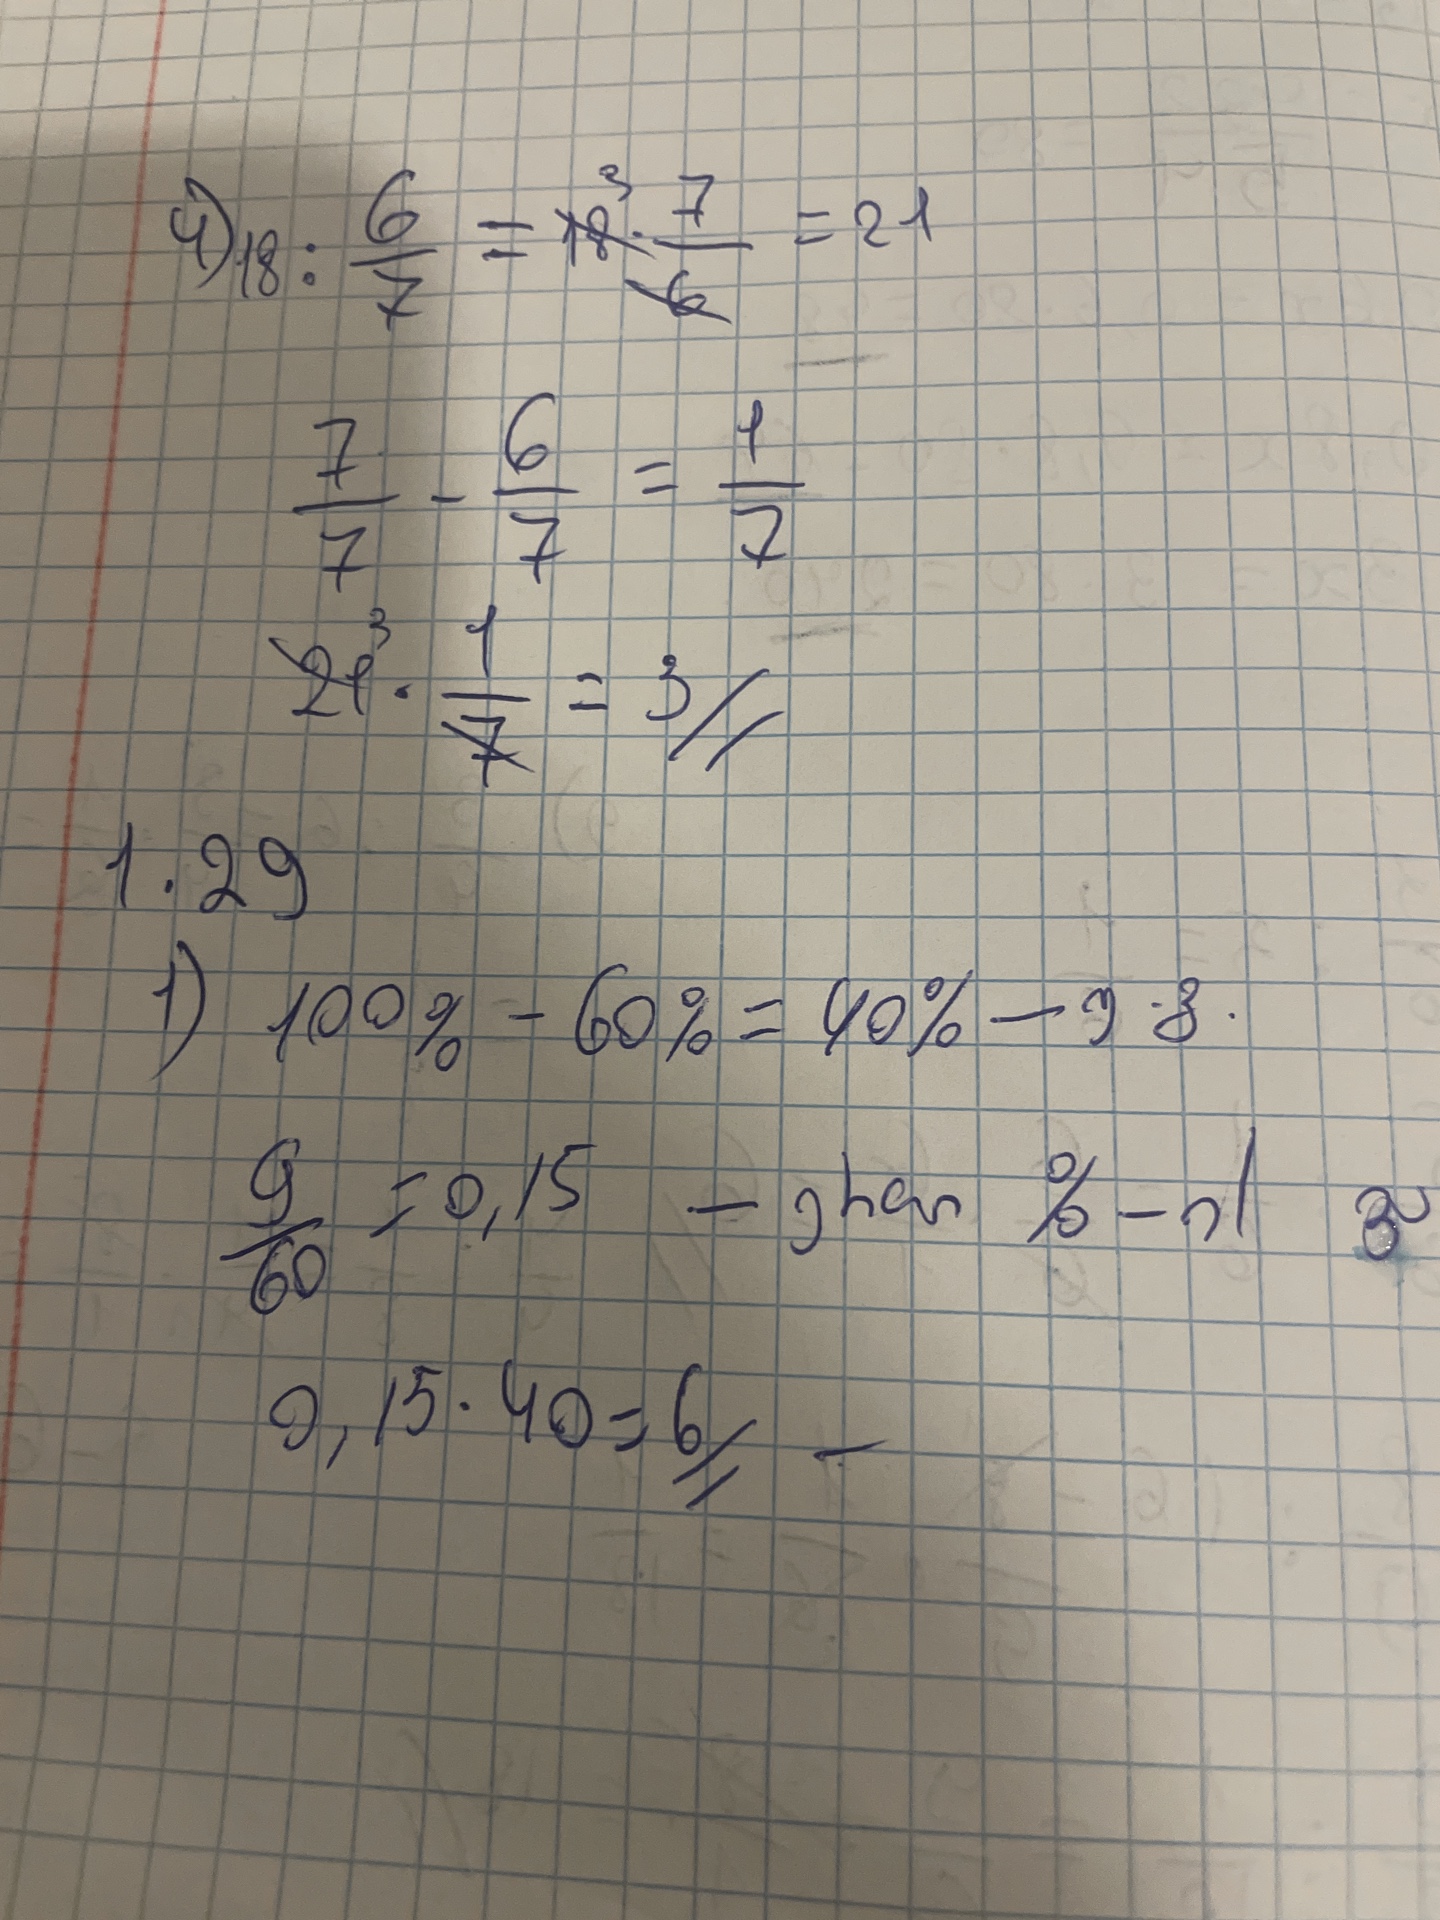 4) 18 : 6/7 = 18³ · 7/6 = 21
7/7 - 6/7 = 1/7
21³ · 1/7 = 3
1.29
1) 100% - 60% = 40% -
9/60 = 0,15 - % -
0,15 · 40 = 6 -